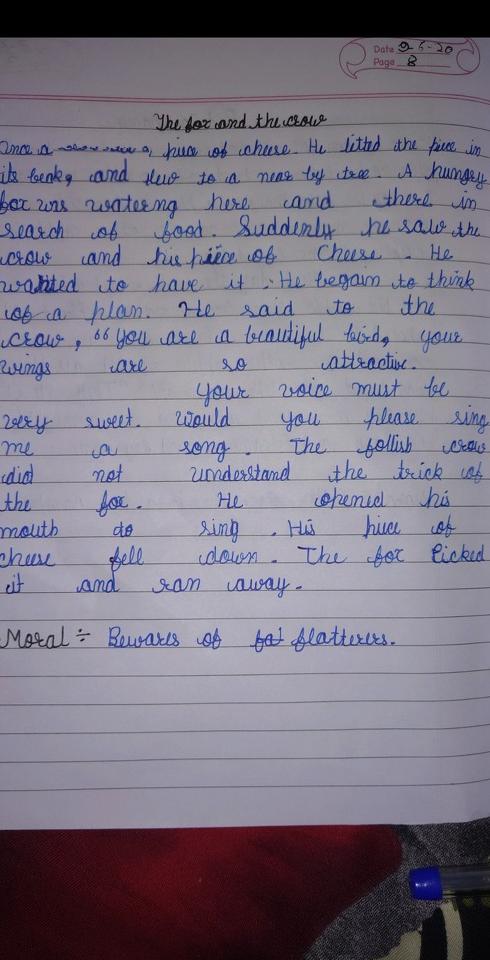 Date 9-5-20
Page 8
The fox and the crow
Once a a, piece of cheese. He litted the piece in
its beak, and flew to a near by tree. A hungry
fox was waterng here and there in
search of food. Suddenly he saw the
crow and his piece of cheese. He
wanted to have it. He begain to think
of a plan. He said to the
crow, "You are a beautiful bird, your
wings are so attractive.
Your voice must be
very sweet. Would you please sing
me a song. The follish crow
did not understand the trick of
the fox. He opened his
mouth to sing. His piece of
cheese fell down. The fox Picked
it and ran away.
Moral ÷ Bewares of flatterers.